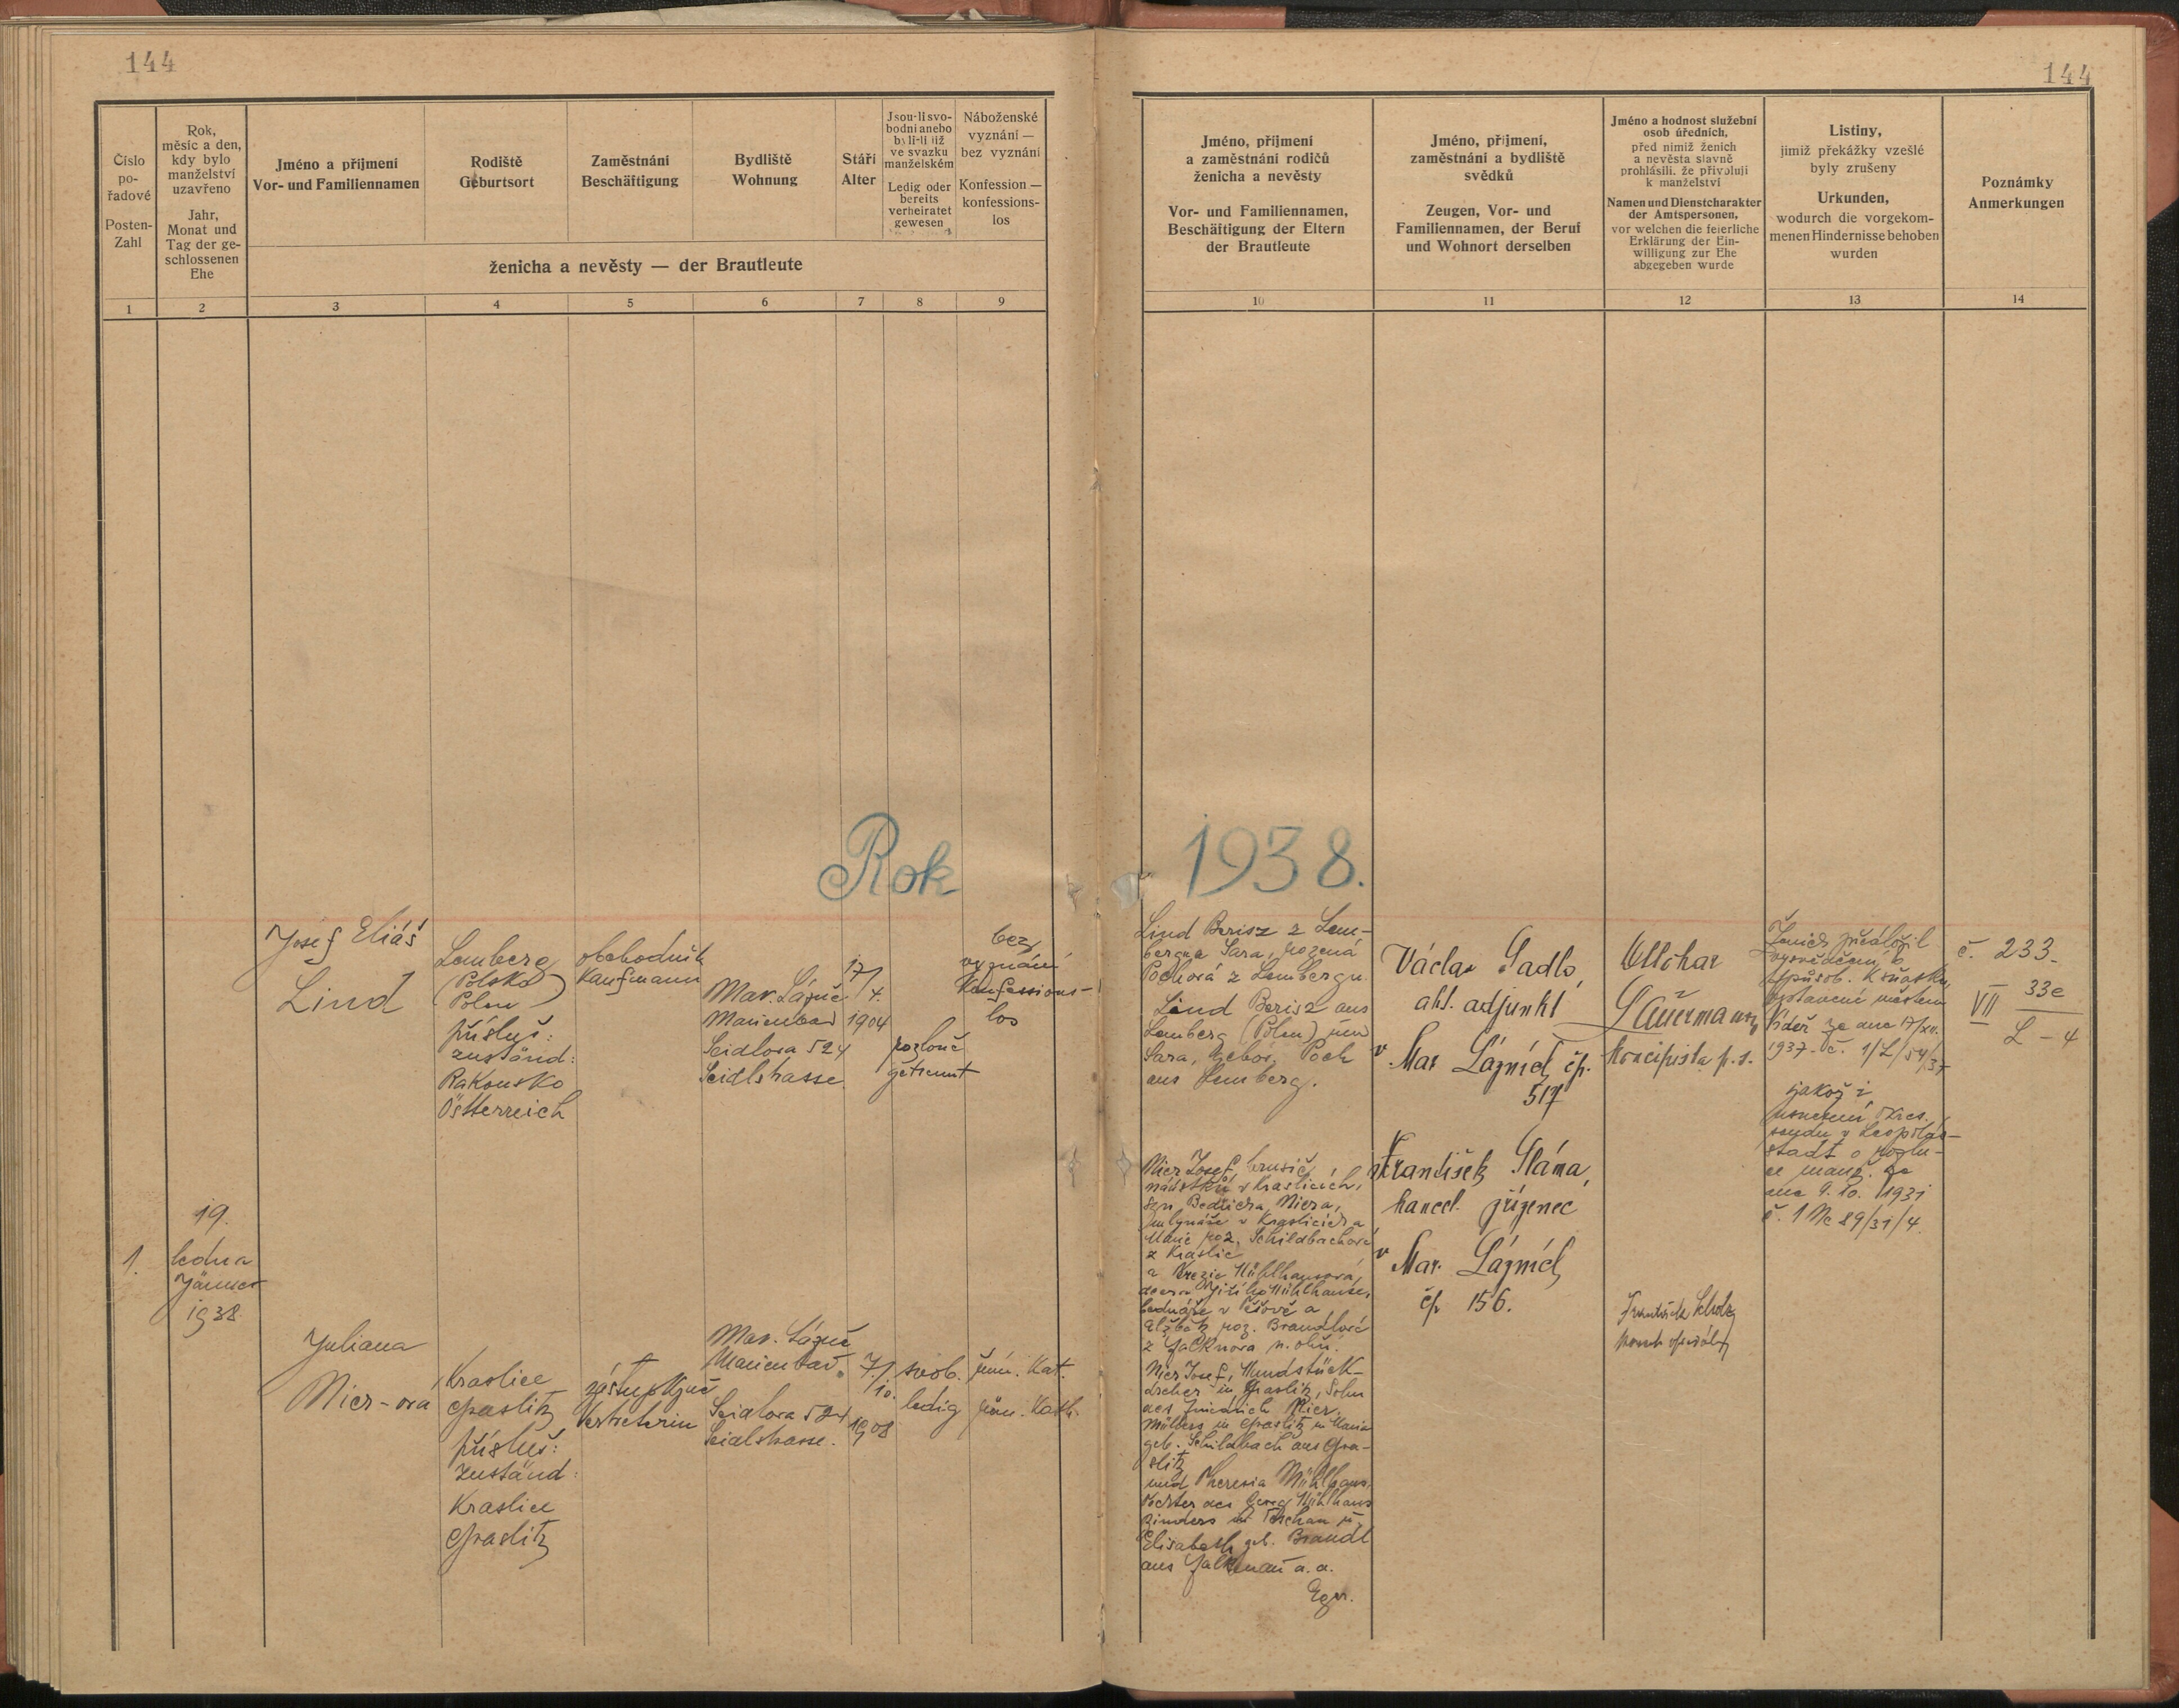 144
144
Číslo
po-
řadové
Posten-
Zahl
Rok,
měsíc a den,
kdy bylo
manželství
uzavřeno
Jahr,
Monat und
Tag der ge-
schlossenen
Ehe
Jméno a příjmení
Vor- und Familiennamen
Rodiště
Geburtsort
Zaměstnání
Beschäftigung
Bydliště
Wohnung
Stáří
Alter
Jsou-li svo-
bodni anebo
byli-li již
ve svazku
manželském
Ledig oder
bereits
verheiratet
gewesen
Náboženské
vyznání —
bez vyznání
Konfession —
konfessions-
los
ženicha a nevěsty — der Brautleute
1 2 3 4 5 6 7 8 9
Jméno, příjmení
a zaměstnání rodičů
ženicha a nevěsty
Vor- und Familiennamen,
Beschäftigung der Eltern
der Brautleute
Jméno, příjmení,
zaměstnání a bydliště
svědků
Zeugen, Vor- und
Familiennamen, der Beruf
und Wohnort derselben
Jméno a hodnost služební
osob úředních,
před nimiž ženich
a nevěsta slavně
prohlásili, že přivolují
k manželství
Namen und Dienstcharakter
der Amtspersonen,
vor welchen die feierliche
Erklärung der Ein-
willigung zur Ehe
abgegeben wurde
Listiny,
jimiž překážky vzešlé
byly zrušeny
Urkunden,
wodurch die vorgekom-
menen Hindernisse behoben
wurden
Poznámky
Anmerkungen
10 11 12 13 14
Rok 1938.
1.
19.
ledna
Jänner
1938.
Josef Eliáš
Lind
Lemberg
(Polsko)
Polen
přísluš:
zuständ:
Rakousko
Österreich
obchodník
Kaufmann
Mar. Lázně
Marienbad
Seidlova 524
Seidlstrasse.
17/
4.
1904
rozlouč.
getrennt
bez
vyznání
Konfessions-
los
Juliana
Nier-ová
Kraslice
Graslitz
přísluš:
zuständ:
Kraslice
Graslitz
zástupkyně
Vertreterin
Mar. Lázně
Marienbad.
Seidlova 524
Seidlstrasse.
7/
10.
1908
svob.
ledig
řím. kat.
röm. Kath.
Lind Berisz z Lem-
bergu a Sara, rozená
Pochová z Lembergu.
Lind Berisz aus
Lemberg (Polen) und
Sara, gebor. Poch
aus Lemberg.
Nier Josef, brusič
náústků v Kraslicích,
syn Bedřicha Niera,
mlynáře v Kraslicích a
Marie roz. Schildbachové
z Kraslic
a Terezie Mühlhansová,
dcera Jiřího Mühlhanse,
bednáře v a
Alžběty roz. Brandlové
z Falknova n. Ohří.
Nier Josef, Mundstück-
dreher in Graslitz, Sohn
des Friedrich Nier,
Müllers in Graslitz u. Maria
geb. Schildbach aus Gra-
slitz
und Theresia Mühlhans,
Tochter des Georg Mühlhans
Binders in u.
Elisabeth geb. Brandl
aus Falkenau a. d.
Eger.
Václav Sadlo,
akt. adjunkt
v Mar. Lázních čp.
517
František Sláma,
kancel. zřízenec
v Mar. Lázních
čp. 156.
Ottokar
Lauermann,
koncipista p. s.
František Scholz
Ženich předložil
vysvědčení o
způsob. k sňatku,
vystavené městem
Vídeň ze dne 17/XII.
1937. č. 1/L/54/37
jakož i
usnesení okres.
soudu v Leopold-
stadt o rozlu-
ce manž. ze
dne 9. 10. 1931
č. 1 Nc 89/31/4.
č. 233.
VII 33e
L – 4